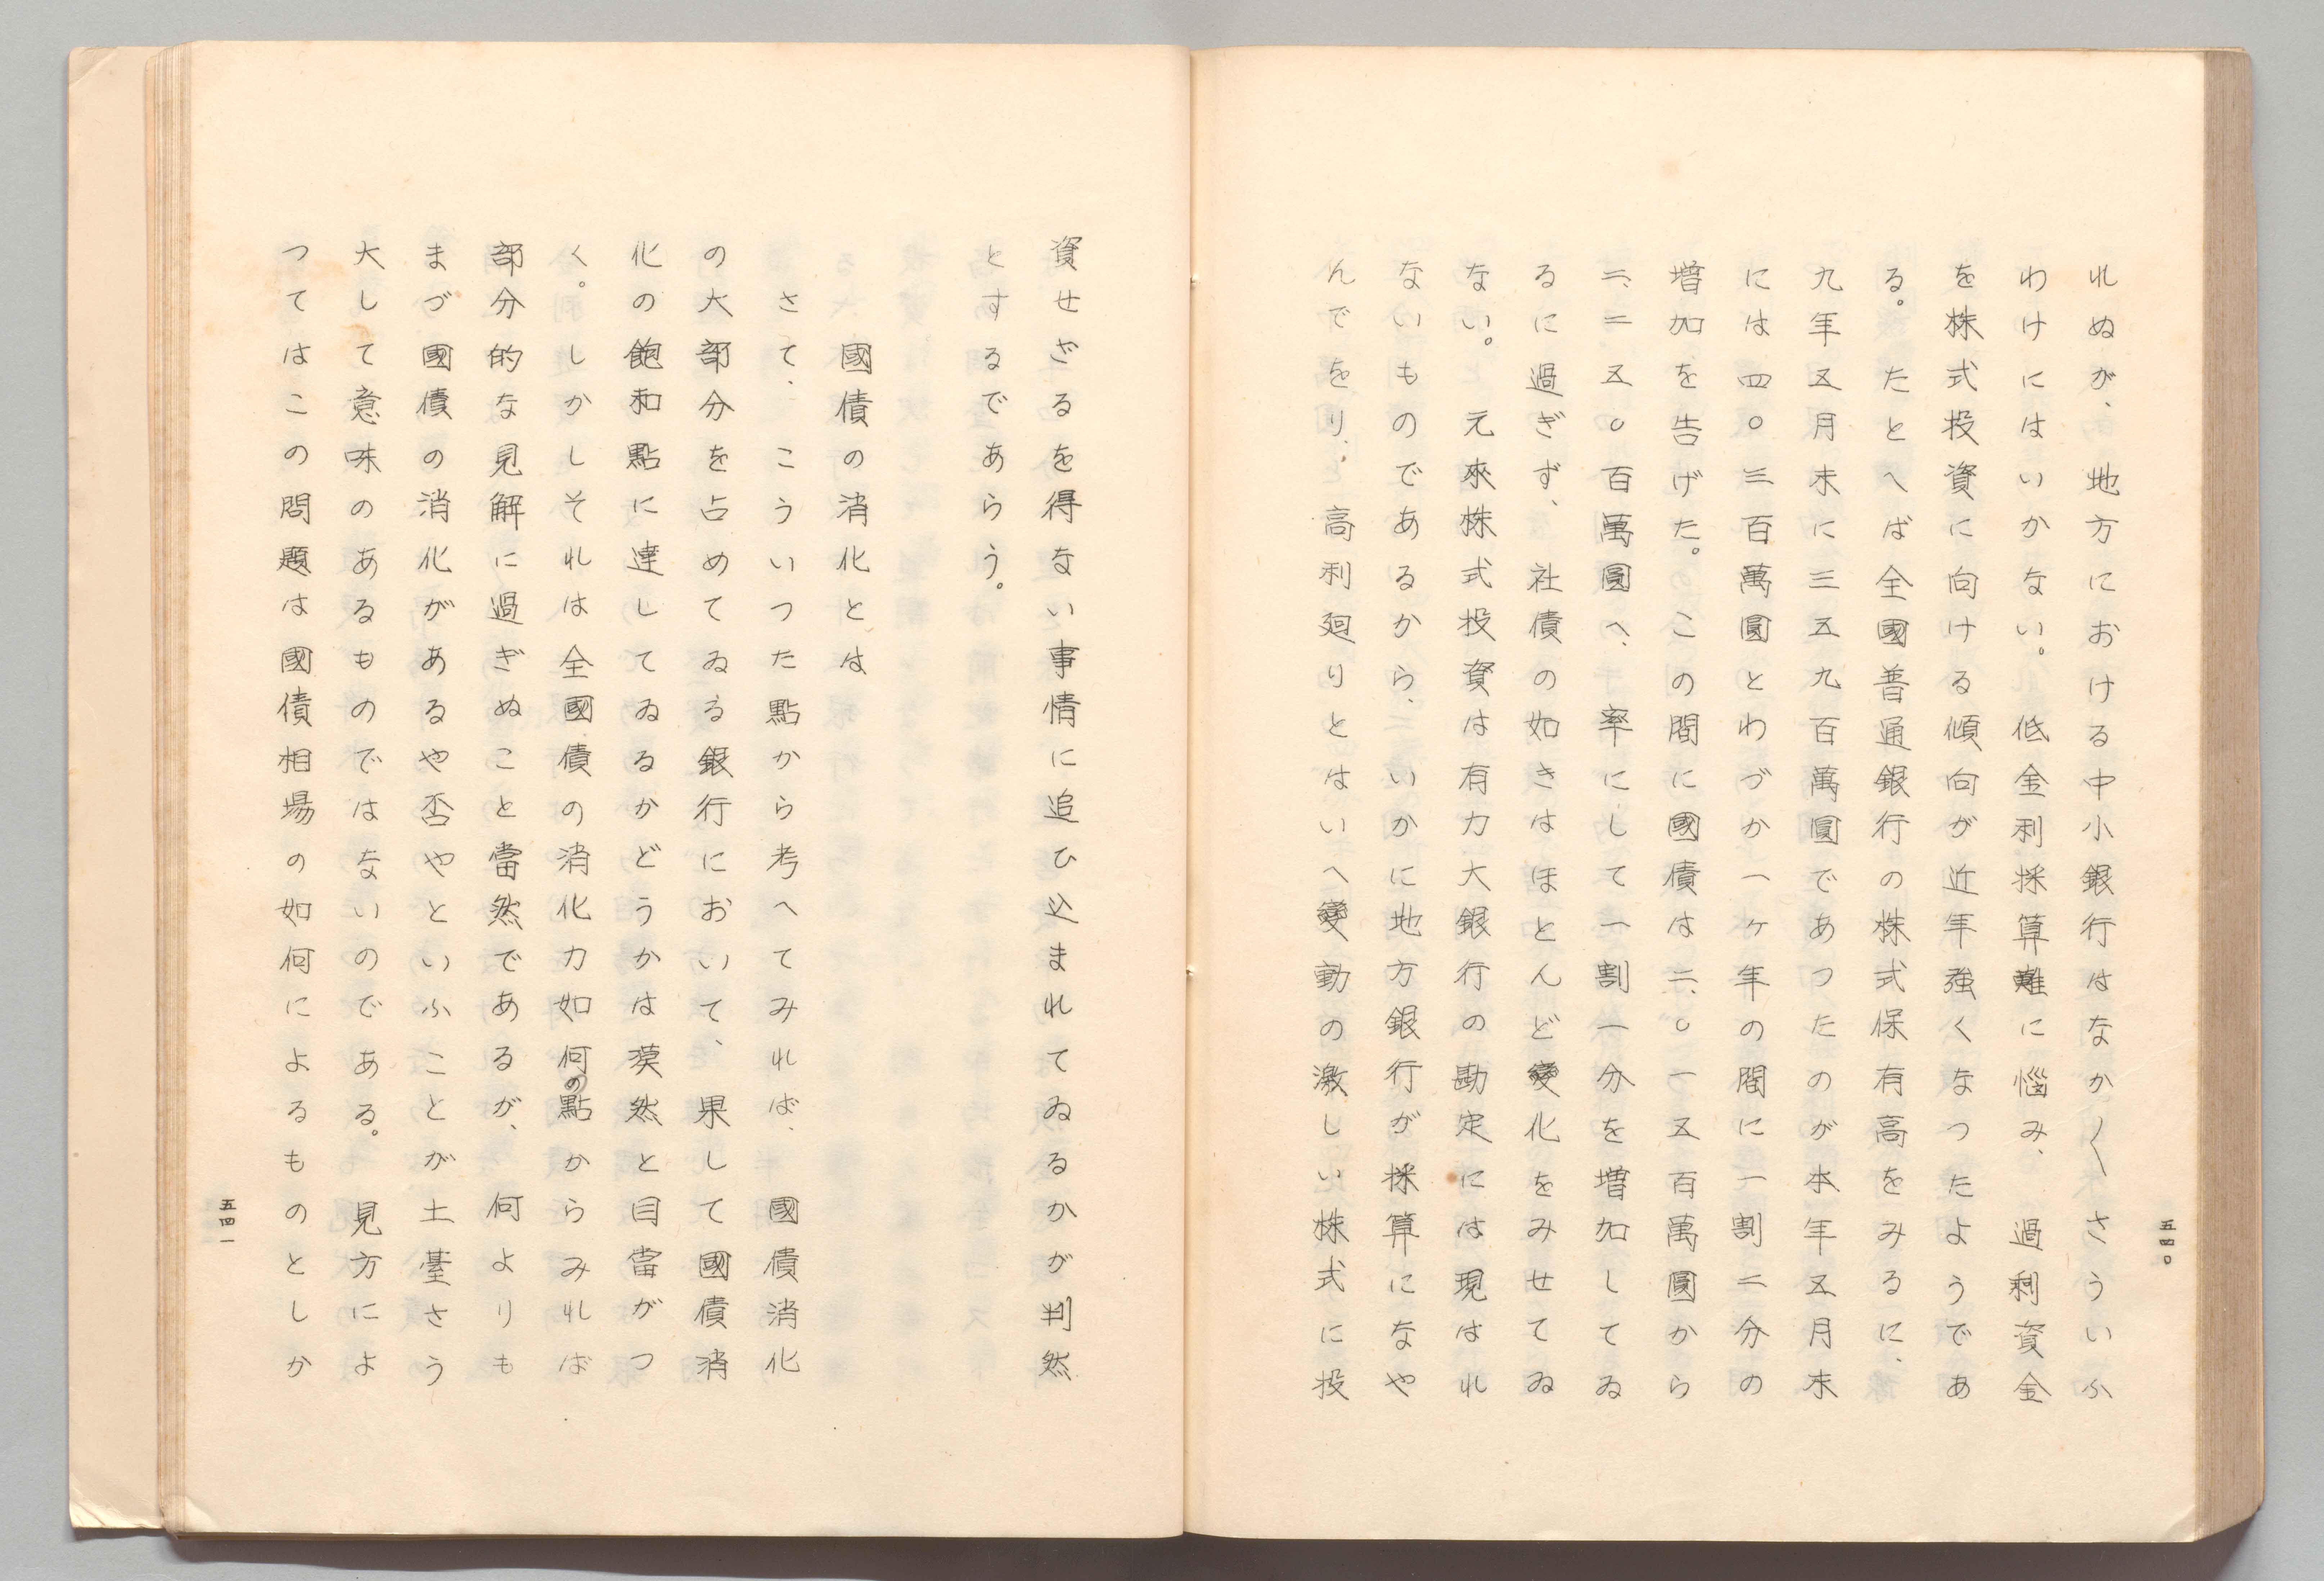 五四〇
れぬが、地方における中小銀行はなか〳〵さういふ
わけにはいかない。低金利採算難に惱み、過剩資金
を株式投資に向ける傾向が近年強くなつたようであ
る。たとへば全國普通銀行の株式保有高をみるに、
九年五月末に三五九百萬圓であつたのが本年五月末
には四〇三百萬圓とわづか一ヶ年の間に一割二分の
増加を告げた。この間に國債は二、〇一五百萬圓から
二、二五〇百萬圓へ、率にして一割一分を増加してゐ
るに過ぎず、社債の如きはほとんど變化をみせてゐ
ない。元來株式投資は有力大銀行の勘定には現はれ
ないものであるから、いかに地方銀行が採算になや
んでをり、高利廻りとはいへ變動の激しい株式に投
資せざるを得ない事情に追ひ込まれてゐるかが判然
とするであらう。
國債の消化とは
さて、こういつた點から考へてみれば、國債消化
の大部分を占めてゐる銀行において、果して國債消
化の飽和點に達してゐるかどうかは漠然と目當がつ
く。しかしそれは全國債の消化力如何の點からみれば
部分的な見解に過ぎぬこと當然であるが、何よりも
まづ國債の消化があるや否やといふことが土臺さう
大して意味のあるものではないのである。見方によ
つてはこの問題は國債相場の如何によるものとしか
五四一